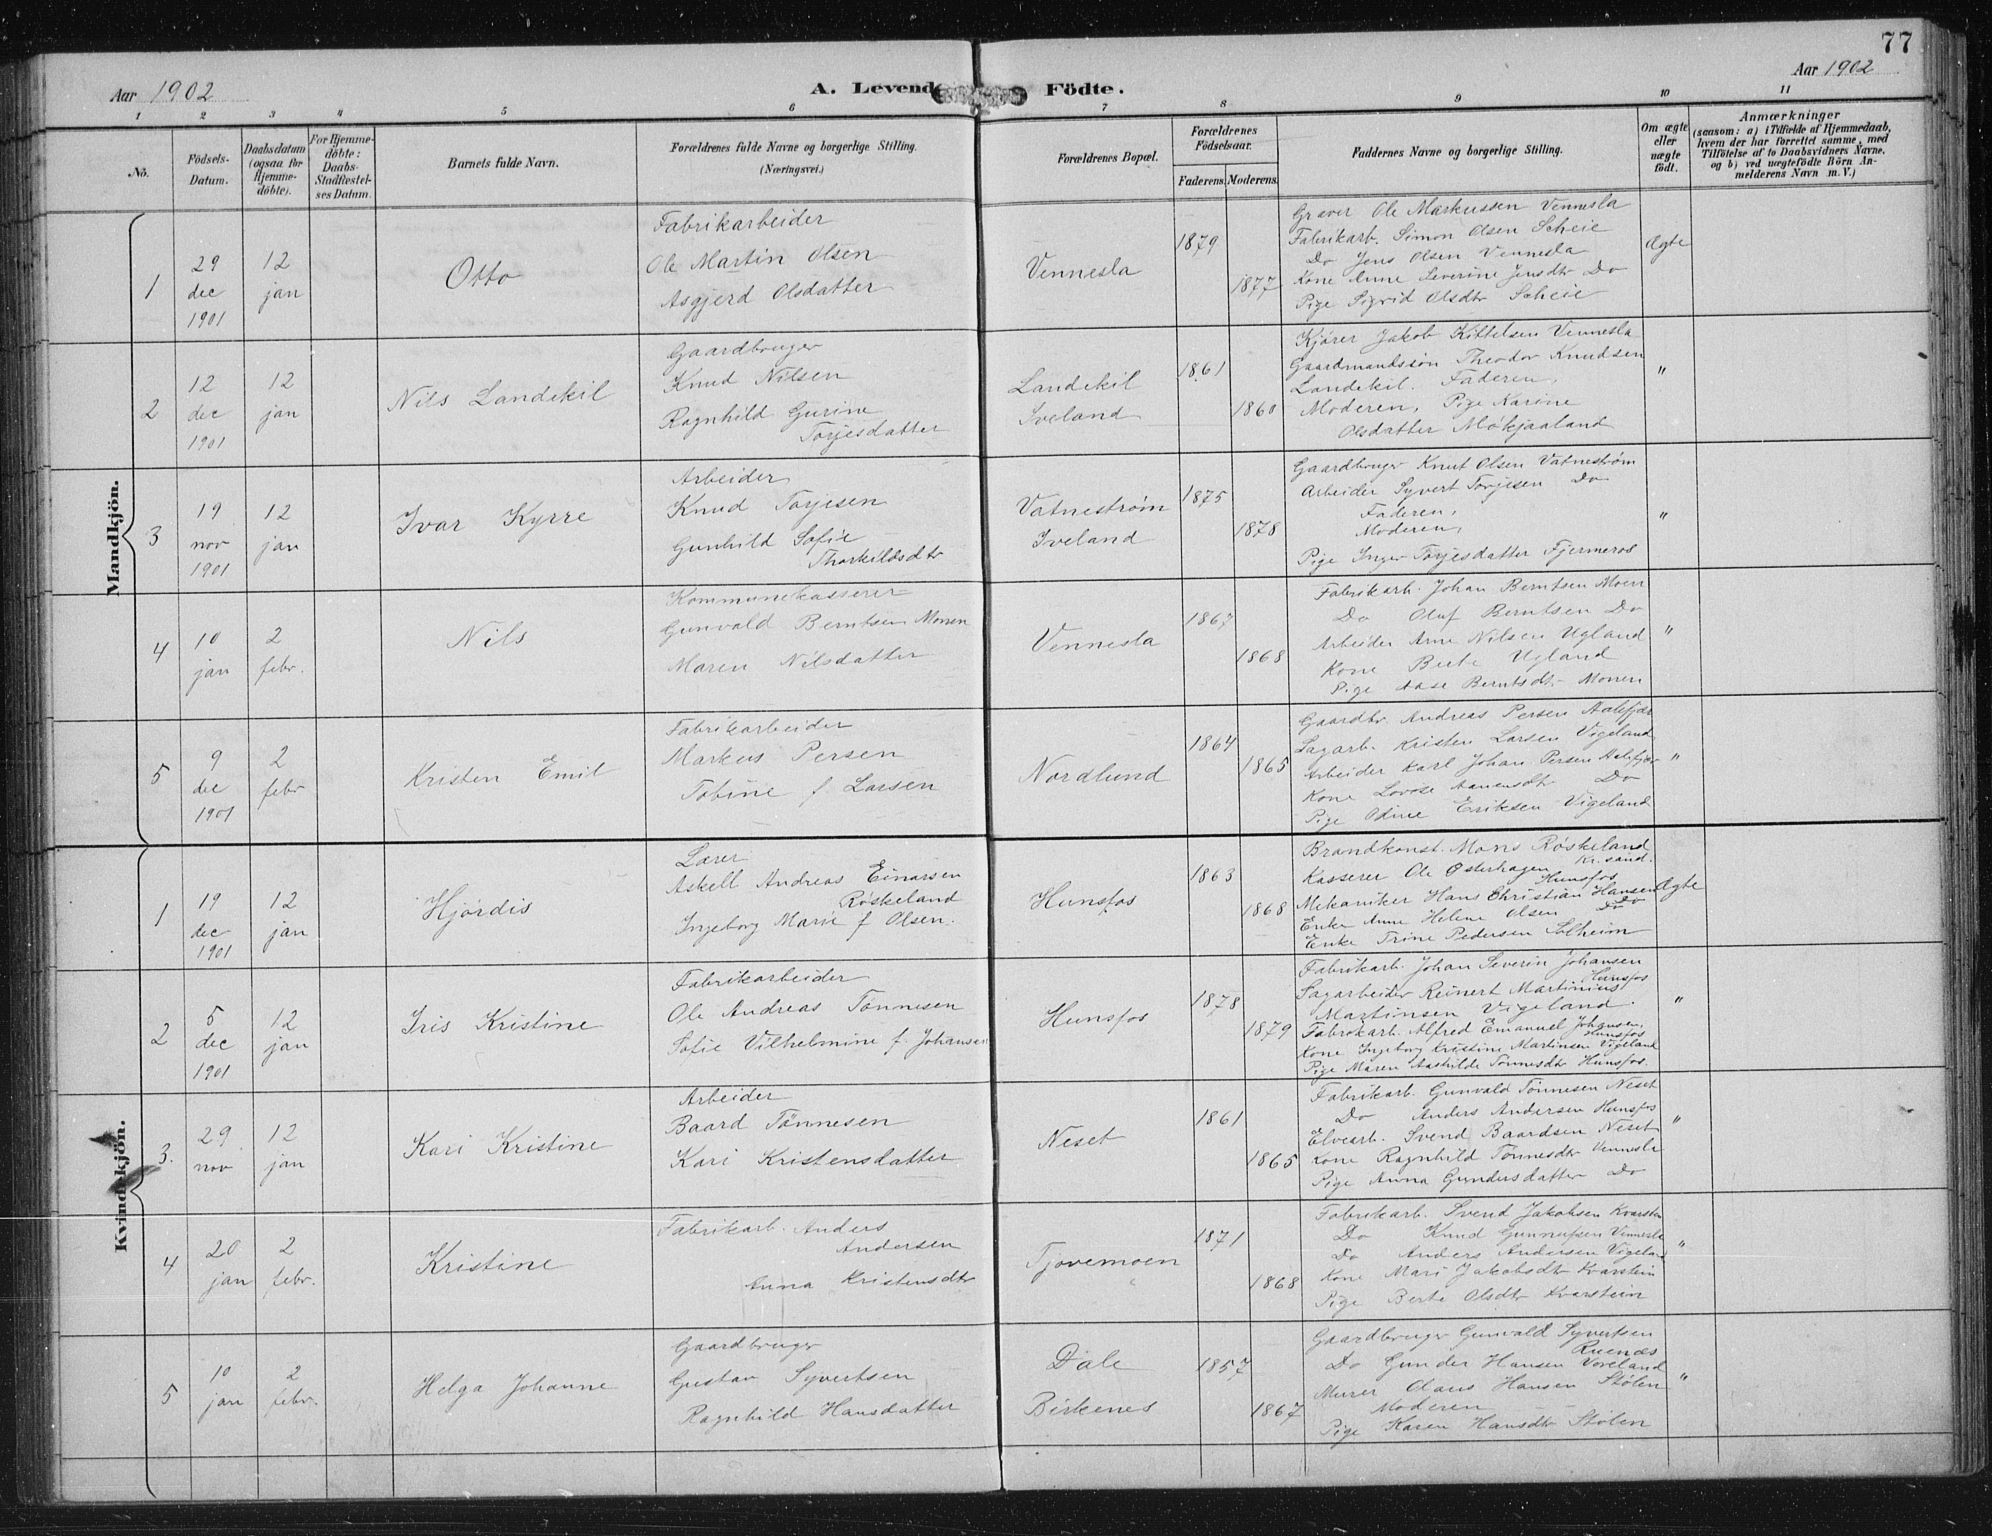 77
Aar 1902
A. Levende Födte.
Aar 1902
1 2 3 4 5 6 7 8 9 10 11
No.
Födsels-Datum.
Daabsdatum (ogsaa for Hjemme-döbte).
For Hjemme-döbte: Daabs-Stadfæstel-ses Datum.
Barnets fulde Navn.
Forældrenes fulde Navne og borgerlige Stilling.
(Næringsvei.)
Forældrenes Bopæl.
Forældrenes Födselsaar.
Faderens. Moderens.
Faddernes Navne og borgerlige Stilling.
Om ægte eller uægte födt.
Anmærkninger
(saasom: a) i Tilfælde af Hjemmedaab,
hvem der har forrettet samme, med
Tilföielse af to Daabsvidners Navne,
og b) ved uægtefödte Börn An-
melderens Navn m. V.)
Mandkjön.
1
29 dec 1901
12 jan
Otto
Fabrikarbeider
Ole Martin Olsen
Asgjerd Olsdatter
Vennesla
1879
1877
Graver Ole Markussen Vennesla
Fabrikarb. Simon Olsen Scheie
Do Jens Olsen Vennesla
Kone Anne Severine Jensdtr Do
Pige Sigrid Olsdtr Scheie
Ægte
2
12 dec 1901
12 jan
Nils Landekil
Gaardbruger
Knud Nilsen
Ragnhild Gurine
Torjesdatter
Landekil
Iveland
1861
1860
Kjører Jakob Kittelsen Vennesla
Gaardmandssön Theodor Knudsen
Landekil. Faderen,
Moderen, Pige Karine
Olsdatter Møkjaaland
"
3
19 nov 1901
12 jan
Ivar Kyrre
Arbeider
Knud Torjesen
Gunhild Sofie
Thorkildsdtr
Vatneström
Iveland
1875
1878
Gaardbruger Knut Olsen Vatneström
Arbeider Syvert Torjesen Do
Faderen,
Moderen,
Pige Inger Torjesdatter Fjermeros
"
4
10 jan
2 febr.
Nils
Kommunekasserer
Gunvald Berntsen Monen
Maren Nilsdatter
Vennesla
1867
1868
Fabrikarb. Johan Berntsen Moen
Do Oluf Berntsen Do
Arbeider Arne Nilsen Ugland
Kone Berte Ugland
Pige Aase Berntsdtr Monen
"
5
9 dec 1901
2 febr
Kristen Emil
Fabrikarbeider
Markus Persen
Tobine f Larsen
Nordlund
1864
1865
Gaardbr. Andreas Persen Aalefjær
Sagarb. Kristen Larsen Vigeland
Arbeider Karl Johan Persen Aalefjær
Kone Lovise Aanensdtr Do
Pige Odine Eriksen Vigeland
"
Kvindekjön.
1
19 dec 1901
12 jan
Hjördis
Lærer
Askell Andreas Einarsen
Röskeland
Ingeborg Marie f Olsen.
Hunsfos
1863
1868
Brandkonst. Mons Röskeland
Kr.sand.
Kasserer Ole Østerhagen
Hunsfos
Mekaniker Hans Christian Hansen
Enke Anne Helene Olsen Do
Enke Trine Pedersen Solheim
Ægte
2
5 dec 1901
12 jan
Iris Kristine
Fabrikarbeider
Ole Andreas Tönnesen
Sofie Vilhelmine f. Johansen
Hunsfos
1878
1879
Fabrikarb. Johan Severin Johansen
Hunsfos
Sagarbeider Reinert Martinius
Martinsen Vigeland.
Fabrikarb. Alfred Emanuel Johansen,
Hunsfos
Kone Ingeborg Kristine Martinsen Vigeland
Pige Maren Aashilde Tönnesdtr Hunsfos.
"
3.
29 nov
12 jan
Kari Kristine
Arbeider
Baard Tönnesen
Kari Kristensdatter
Neset
1861
1865
Fabrikarb. Gunvald Tönnesen Neset
Do Anders Andersen Hunsfos
Elvearb. Svend Baardsen Neset
Kone Ragnhild Tönnesdtr Vennesla
Pige Anna Gundersdatter Do
"
4
20 jan
2 febr.
Kristine
Fabrikarb. Anders
Andersen
Anna Kristensdtr
Tjovemoen
1871
1868
Fabrikarb. Svend Jakobsen Kvarstein
Do Knud Gunnufsen Vennesla
Do Anders Andersen Vigeland
Kone Mari Jakobsdtr Kvarstein
Pige Berte Olsdtr Kvarstein
"
5
10 jan
2 febr.
Helga Johanne
Gaardbruger
Gustav Syvertsen
Ragnhild Hansdatter
Dale
Birkenes
1857
1867
Gaardbruger Gunvald Syvertsen
Ruenæs
Do Gunder Hansen Voreland
Murer Claus Hansen Stölen
Moderen
Pige Karen Hansdtr Stölen
"